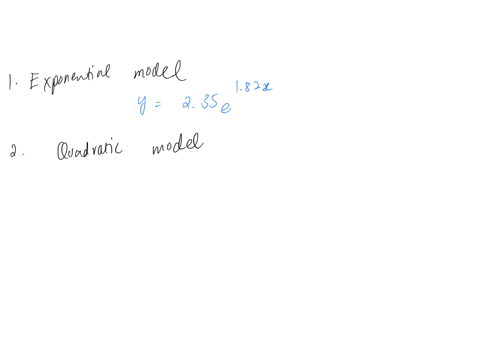 1. Exponential model
y = 2.35e^1.82x
2. Quadratic model